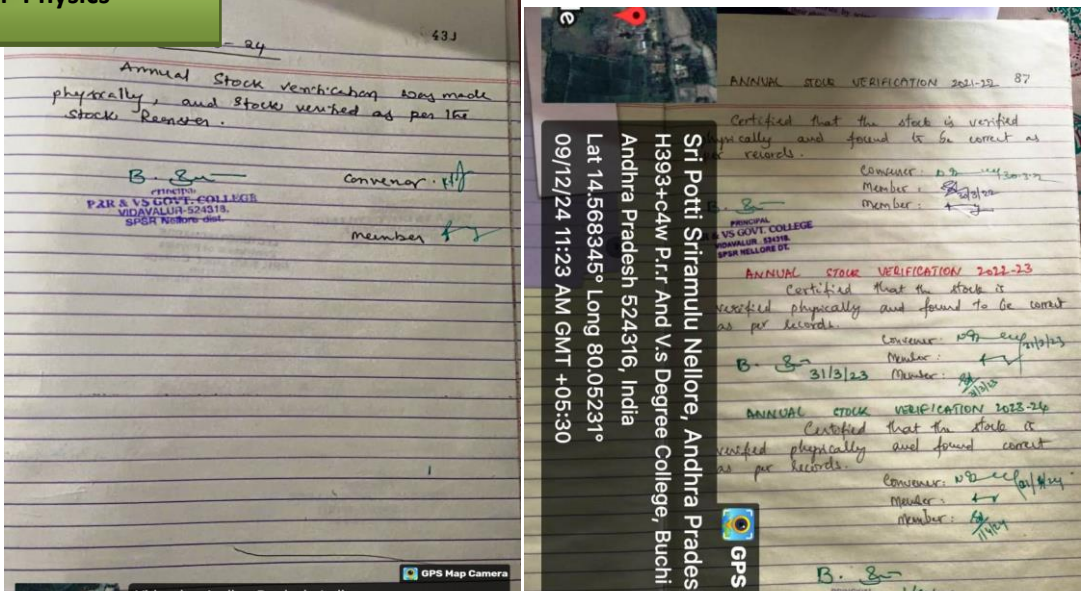 Physics
- 24
Annual Stock verification was made
physically, and Stock verified as per the
Stock Register.
B.
Principal
PRR & VS GOVT. COLLEGE
VIDAVALUR-524318.
SPSR Nellore dist.
Convenor.
member
GPS Map Camera
Sri Potti Sriramulu Nellore, Andhra Prades
H393+c4w P.r.r And V.s Degree College, Buchi
Andhra Pradesh 524316, India
Lat 14.568345° Long 80.05231°
09/12/24 11:23 AM GMT +05:30
GPS
ANNUAL STOCK VERIFICATION 2021-22 87
Certified that the stock is verified
physically and found to be correct as
per records.
Convener:
Member:
Member:
B.
PRINCIPAL
& VS GOVT. COLLEGE
VIDAVALUR - 524318.
SPSR NELLORE DT.
ANNUAL STOCK VERIFICATION 2022-23
Certified that the stock is
verified physically and found to be correct
as per records.
Convener: 31/3/23
Member:
B. 31/3/23 Member:
ANNUAL STOCK VERIFICATION 2023-24
Certified that the stock is
verified physically and found correct
as per records.
Convener:
Member:
Member:
B.